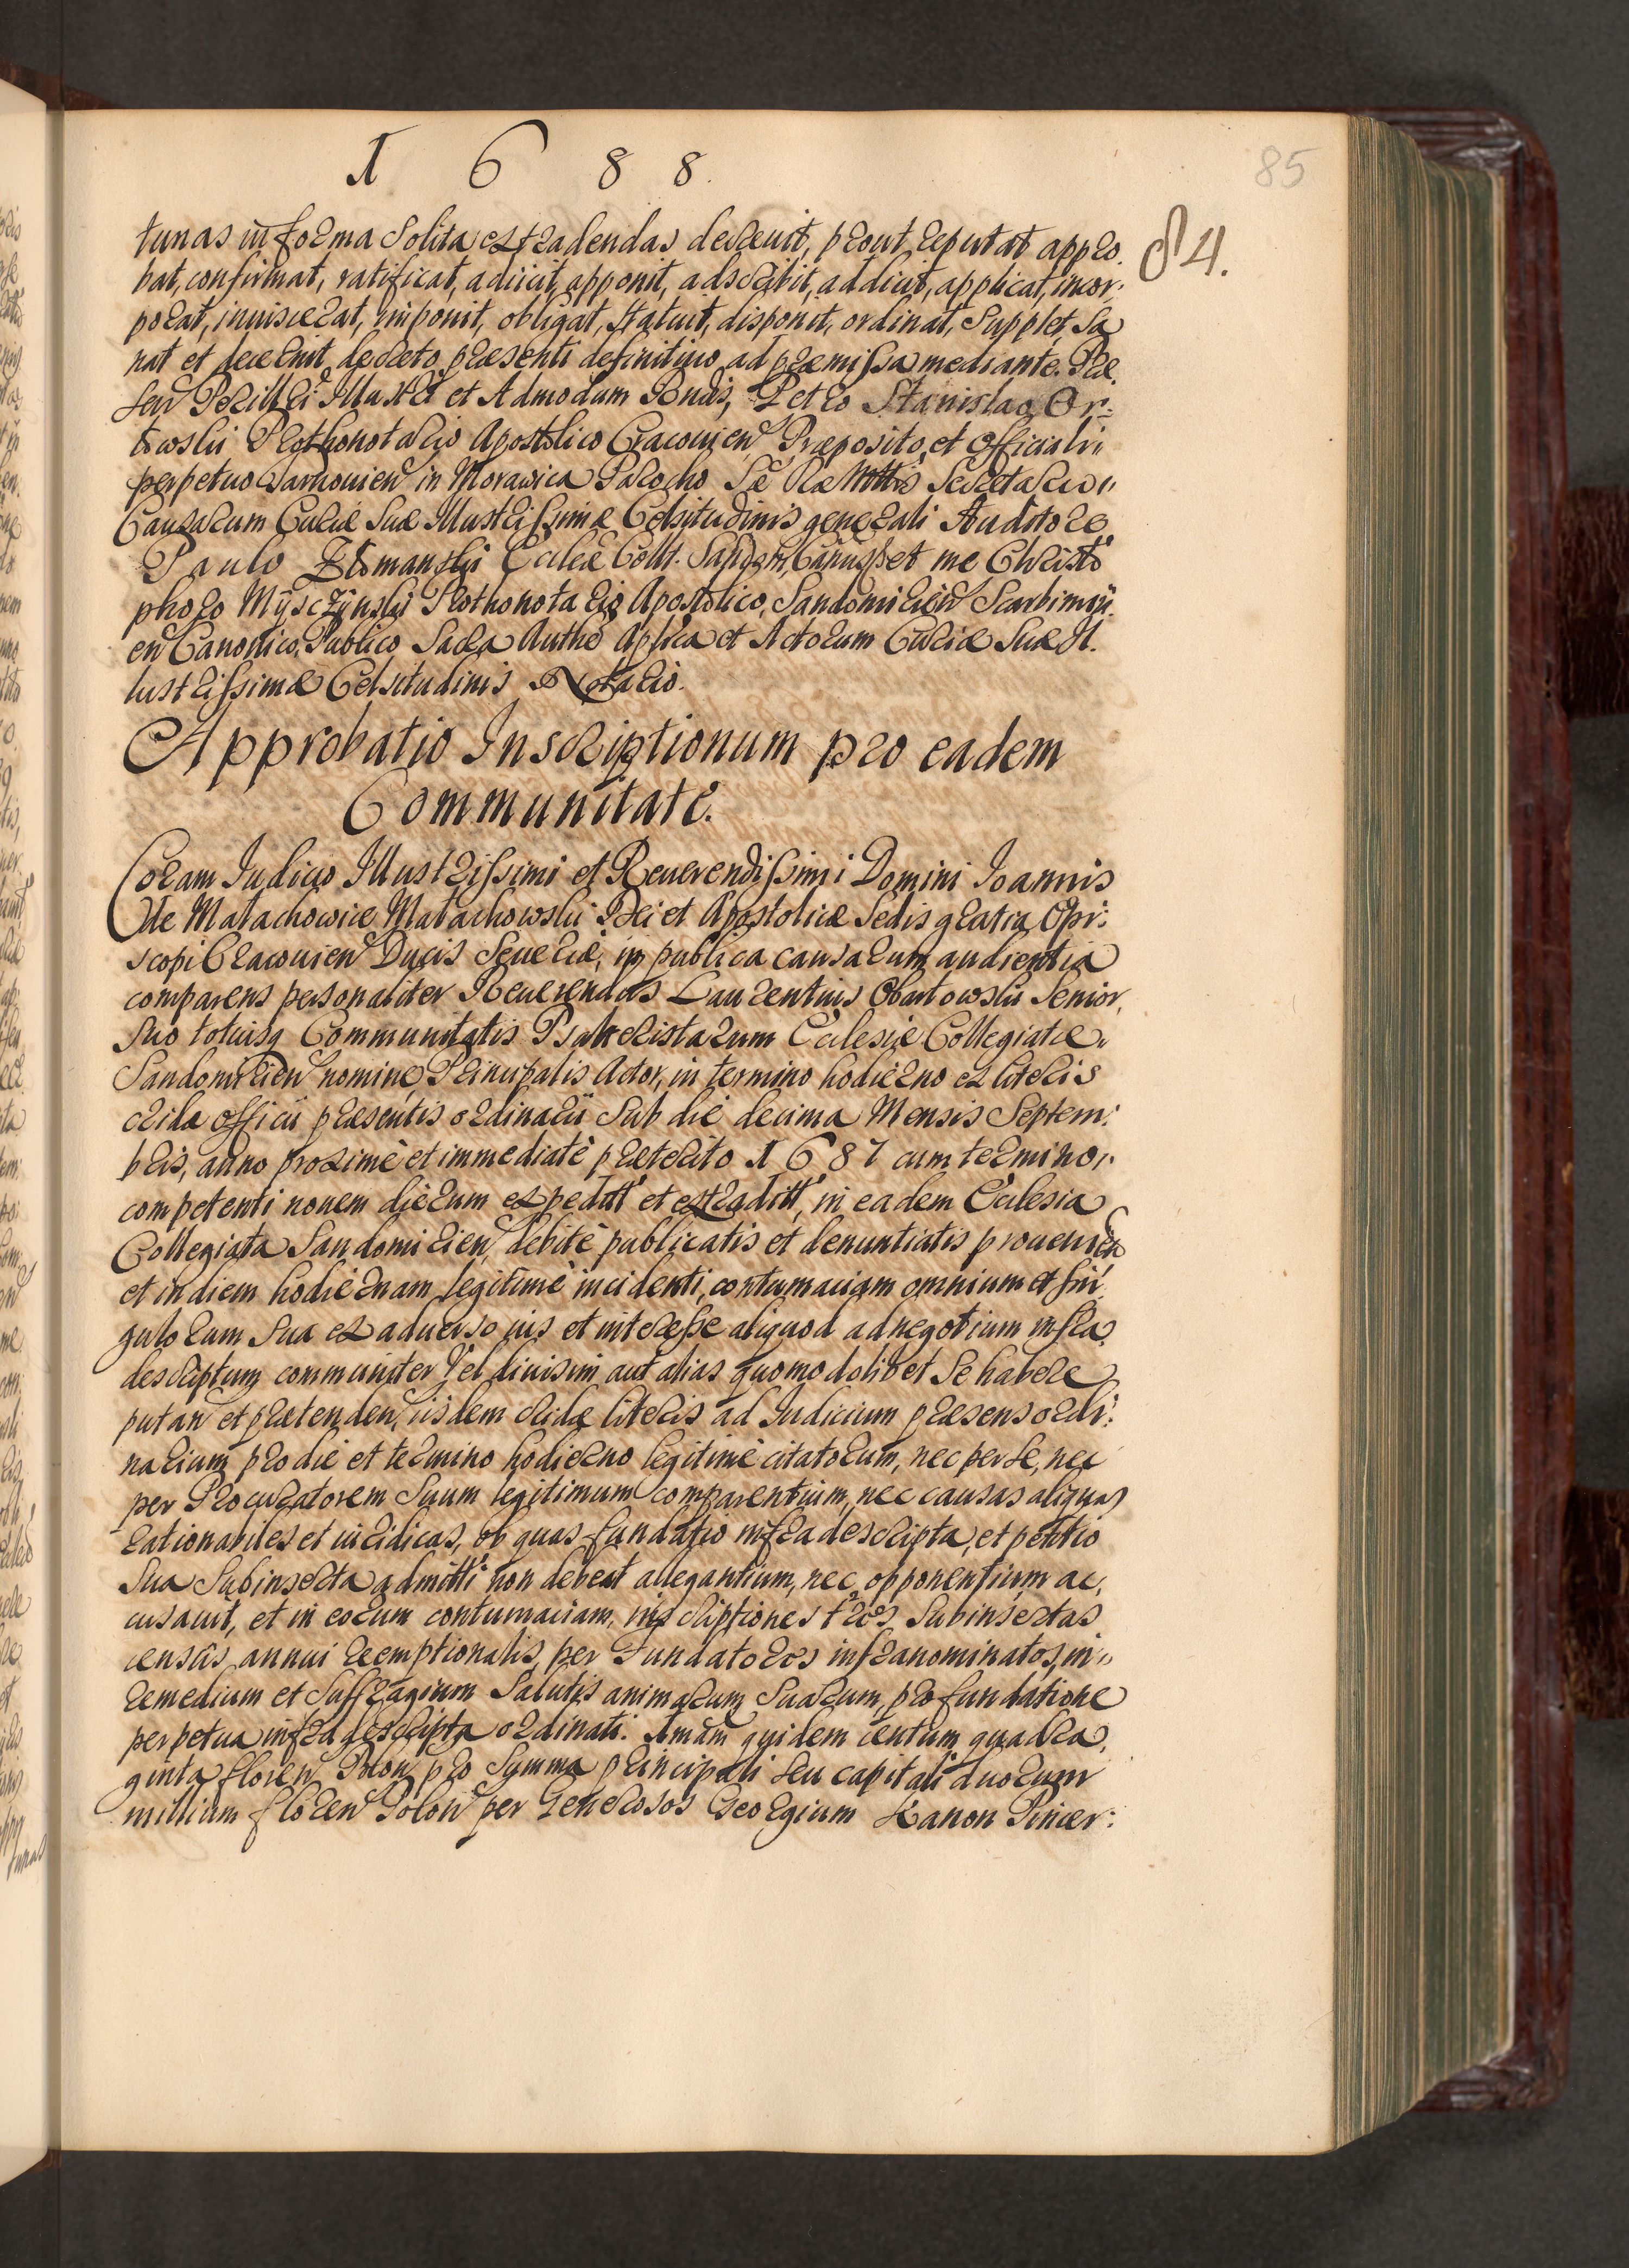 1 6 8 8.
85
84.
tunas in forma solita extradendas decreuit, prout reputat appro
bat, confirmat, ratificat, adiicit, apponit, adscribit, addicit, applicat, incor:
porat, inuiscerat, imponit, obligat, statuit, disponit, ordinat, supplet, sa
nat et decernit decreto præsenti definitiuo ad præmissa mediante. Præ,
sen Perillri Illustri et Admodum Rndis, Petro Stanislao Or:
towski Prothonotario Apostolico Cracouien Præposito, et Officiali
perpetuo Tarnouien in Morawica Parocho Sæ Ræ Mttis Secretario
Causarum Curiæ Suæ Illustrissimæ Celsitudinis generali Auditore
Paulo Ecclæ Coll. Sandom, Canus et me Christo
phoro Mÿsczÿnski Prothonotario Apostolico, Sandomirien Scarbimiri
en Canonico, Publico Sacra Authe Aplica et Actorum Curiæ Suæ Il.
lustrissimæ Celsitudinis Notario.
Approbatio Inscriptionum pro eadem
Communitate.
Coram Iudicio Illustrissimi et Reuerendissimi Domini Ioannis
de Małachowice Małachowski Dei et Apostolicæ Sedis gratia Epi:
scopi Cracouien Ducis Seueriæ, in publica causarum audientia
comparens personaliter Reuerendus Laurentius Obartowski Senior,
suo totiusq Communitatis Psalteristarum Ecclesiæ Collegiatæ
Sandomirien nomine, Principalis Actor, in termino hodierno ex literis
cridæ officii præsentis ordinarii sub die decima Mensis Septem:
bris, anno proximè et immediatè præterito 1687 cum termino
competenti nouem dierum expeditt et extraditt, in eadem Ecclesia
Collegiata Sandomirien, debitè publicatis et denuntiatis proueniēn
et in diem hodiernam legitimè incidenti, contumaciam omnium et sin
gulorum sua ex aduerso ius et interesse aliquod ad negotium infra
descriptum communiter Vel diuisim aut alias quomodolibet se habere
putan et prætenden, iisdem cridæ literis ad Iudicium præsens ordi:
narium pro die et termino hodierno legitimè citatorum, nec per se, nec
per Procuratorem suum legitimum comparentium, nec causas aliquas
rationabiles et iuridicas, ob quas fundatio infra descripta, et petitio
sua subinserta admitti non debeat allegantium, nec opponentium ac,
cusauit, et in eorum contumaciam, inscriptiones tres subinsertas
censûs annui reemptionalis, per Fundatores infranominatos, in
remedium et suffragium salutis animarum suarum, pro fundatione
perpetua infra descripta ordinati. Imam quidem centum quadra,
ginta floren Polon, pro Summa principali seu capitali duorum
millium floren Polon per Generosos Georgium Kanon Pincer: